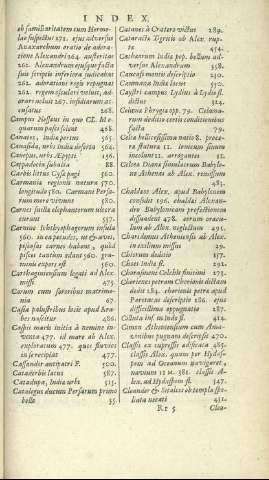 INDEX.
ab familiaritatem cum Hermo-
lao suspectus 271. ejus adversus
Anaxarchum oratio de adora-
tione Alexandri 264. austeritas
262. Alexandrum ejusque facta
suis scriptis inferiora judicabat
262. adorationi regis repugnat
262. regem osculari voluit, ad-
orare noluit 267. insidiarum ac-
cusatus 268.
Campos Nessaus in quo CL M e-
quarum pascebant 468.
Canaes, India portus 565.
Canasida, urbs India deserta 564.
Canopus, urbs Ægypti 156.
Cappadocia subacta 88
Carbii littus Cysa pagi 560.
Carmania regionis natura 570.
longitudo 580. Carmani Persa-
rum more vivunt 580.
Carnes suilla elephanterum ulcera
curant 537.
Carnine Ichthyophagorum insula
560. in ea pecudes, ut & aves,
pisciosas carnes habent, quòd
pisces tantùm edant 560. gra-
minis expers est 560.
Carthaginensium legati ad Alex.
missi 475.
Carum cum sororibus matrimo-
nia 67
Casia palustribus locis apud Ara-
bes nascitur 486.
Caspii maris initia à nemine in-
venta 477. id mare ab Alex.
exploratum 477. quos fluvios
in se recipiat 477.
Cassander antipatri F. 500.
Cataderbis lacus 587.
Catadupa, India urbs 515.
Catalogus ducum Persarum primo
bello 55.
Catanes à Cratero victus 289.
Cataracta Tigridis ab Alex. rup-
ta 454.
Catharorum India pop. bellum ad-
versus Alexandrum 358.
Caucasi montis descriptio 230.
Caumana India locus 550.
Caystri campus Lydius à Lydia fl.
dictus 324.
Celana Phrygia opp. 79. Celana-
rum deditio certis conditionibus
facta 79.
Celox bellicosissimus natio 8. procera
statura 11. iones sinum
incolunt 11. arrogantes 11.
Celcea Diana simulacrum Babylo-
ne Athenas ab Alex. remissum
481.
Chaldaos Alex. apud Babylonem
consulit 196. chaldai Alexan-
dro Babylonicam profectionem
dissuadent 478. eorum oracu-
lum ab Alex. neglectum 495.
Charidemus Atheniensis ab Alex.
in exilium missus 29.
Chiorum deditio 157.
Choes India fl. 292.
Chorasmeni Colchis finitimi 273.
Chorienes petram Choriania dictam
dedit 284. chorienis petra apud
Paretacas descriptio 286. ejus
difficillima oppugnatio 287.
Cilluta ins. in Indo fl. 422.
Cimon Atheniensium cum Ama-
zonibus pugnam descripsit 470.
Classis ex cupresso adificata 485.
classis Alex. quum per Hydas-
pem ad Oceanum navigaret,
navium 12 M. 382. classis A-
lex. ad Hydaspem fl. 547.
Cleander & Sitalces ob templa spo-
liata necati 451.
R r 5 Clea-